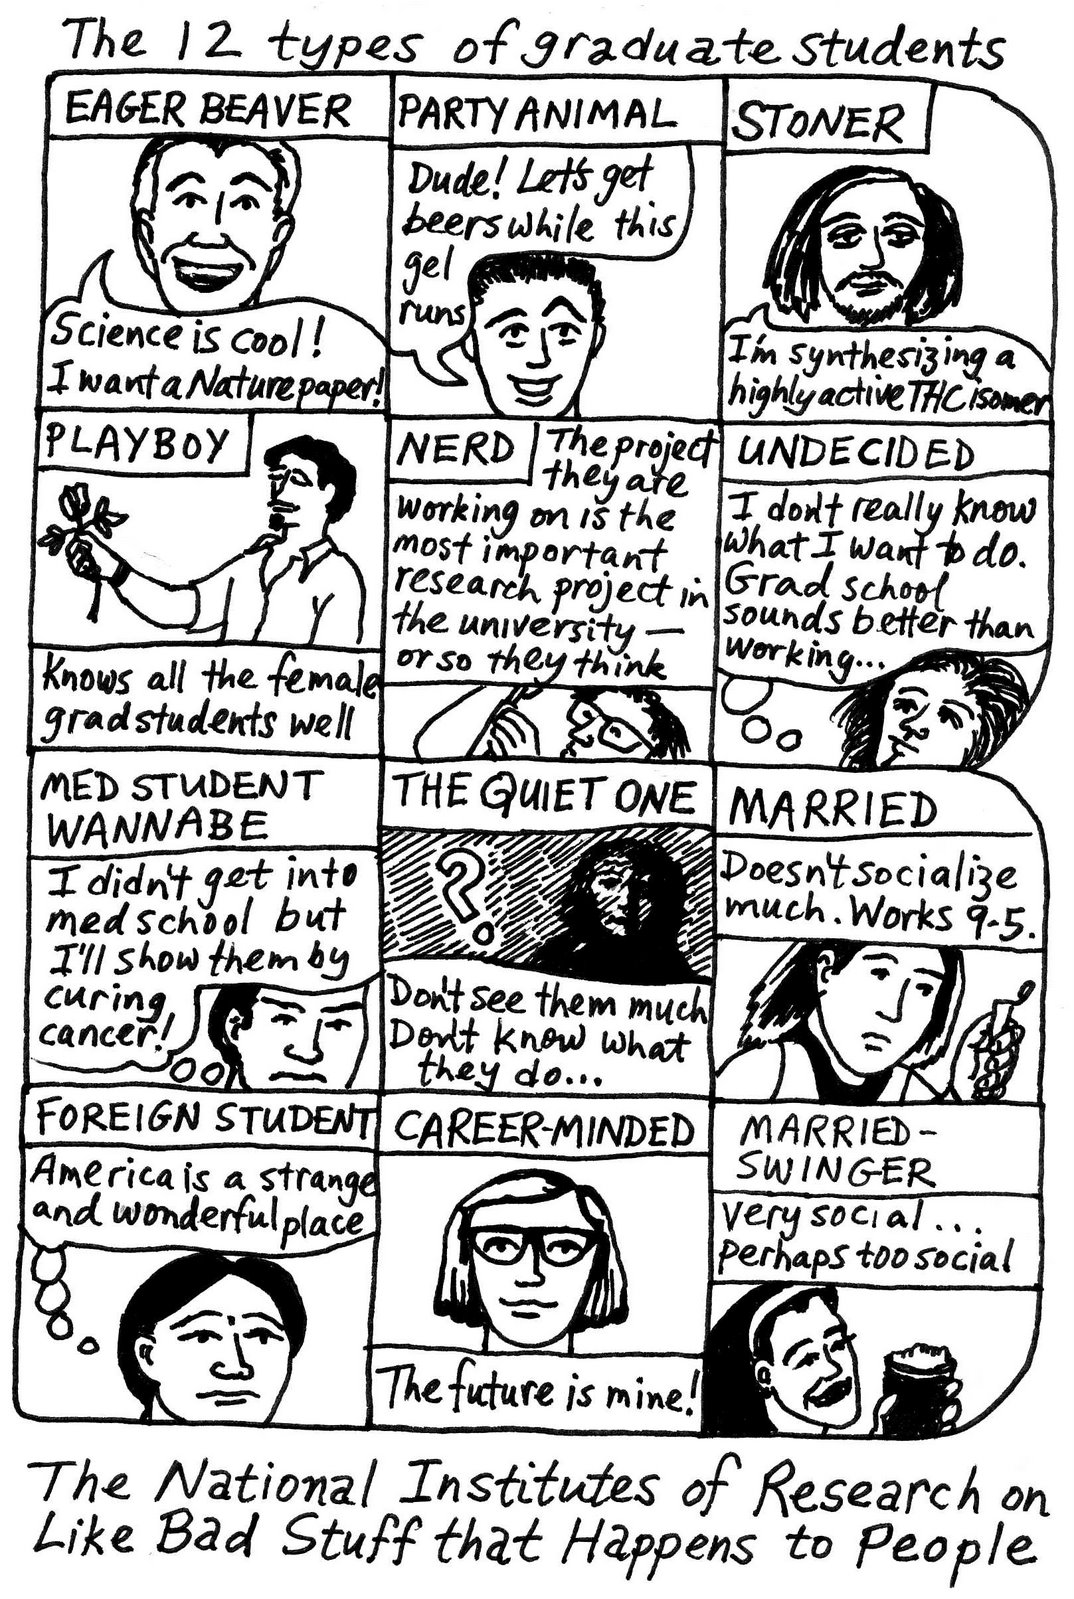 The 12 types of graduate students
EAGER BEAVER
Science is cool!
I want a Nature paper!
PARTY ANIMAL
Dude! Let's get
beers while this
gel
runs
STONER
I'm synthesizing a
highly active THC isomer
PLAYBOY
Knows all the female
grad students well
NERD
The project
they are
working on is the
most important
research project in
the university —
or so they think
UNDECIDED
I don't really know
what I want to do.
Grad school
sounds better than
working...
MED STUDENT
WANNABE
I didn't get into
med school but
I'll show them by
curing
cancer!
THE QUIET ONE
?
Don't see them much
Don't know what
they do...
MARRIED
Doesn't socialize
much. Works 9-5.
FOREIGN STUDENT
America is a strange
and wonderful place
CAREER-MINDED
The future is mine!
MARRIED-
SWINGER
Very social...
perhaps too social
The National Institutes of Research on
Like Bad Stuff that Happens to People